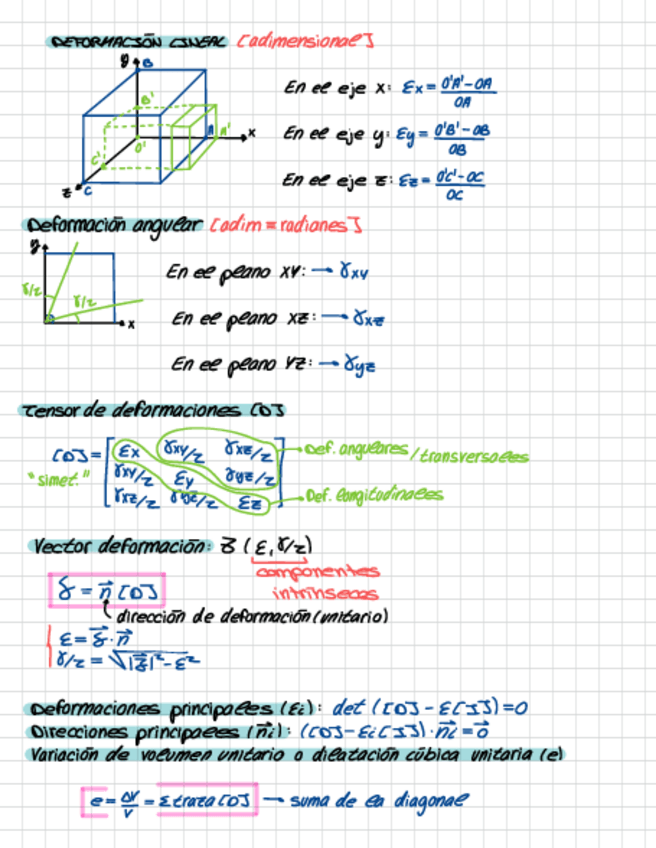 DEFORMACIÓN LINEAL [adimensional]
y B
B'
O' A A' x
C'
z C
En el eje x: εx = O'A'-OA / OA
En el eje y: εy = O'B'-OB / OB
En el eje z: εz = O'C'-OC / OC
Deformación angular [adim=radianes]
y
γ/2
γ/2
x
En el plano XY: → γxy
En el plano XZ: → γxz
En el plano YZ: → γyz
Tensor de deformaciones [D]
[D] = [ εx γxy/2 γxz/2
"simet." γxy/2 εy γyz/2
γxz/2 γyz/2 εz ]
Def. angulares/transversales
Def. longitudinales
Vector deformación: δ (ε, γ/2)
componentes
intrínsecas
δ = n⃗ [D]
dirección de deformación (unitario)
ε = δ⃗ · n⃗
γ/2 = √|δ⃗|² - ε²
Deformaciones principales (εi): det ([D] - ε[I]) = 0
Direcciones principales (n⃗i): ([D] - εi[I]) · n⃗i = 0⃗
Variación de volumen unitario o dilatación cúbica unitaria (e)
e = ΔV/V = Σtraza [D] → suma de la diagonal